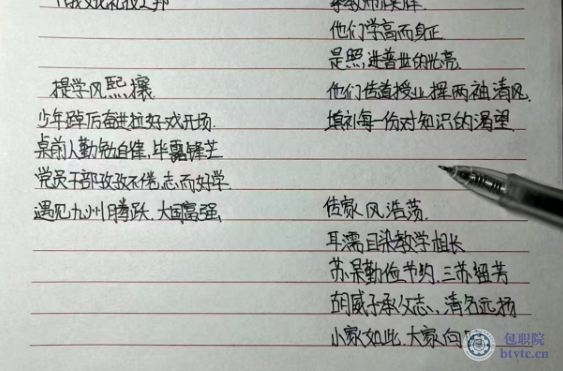 提学风熙攘
少年踔厉奋进拉好戏开场
桌前人勤勉自律,毕露锋芒
党员干部孜孜不倦,志而好学
遇见九州腾跃,大国富强
他们学高而身正
是照进普世的光亮
他们传道授业,挥两袖清风
填补每一份对知识的渴望
传家风浩荡
耳濡目染教学相长
苏杲勤俭节约,三苏
胡威子承父志,清名远扬
小家如此,大家向
包职院
btvtc.cn